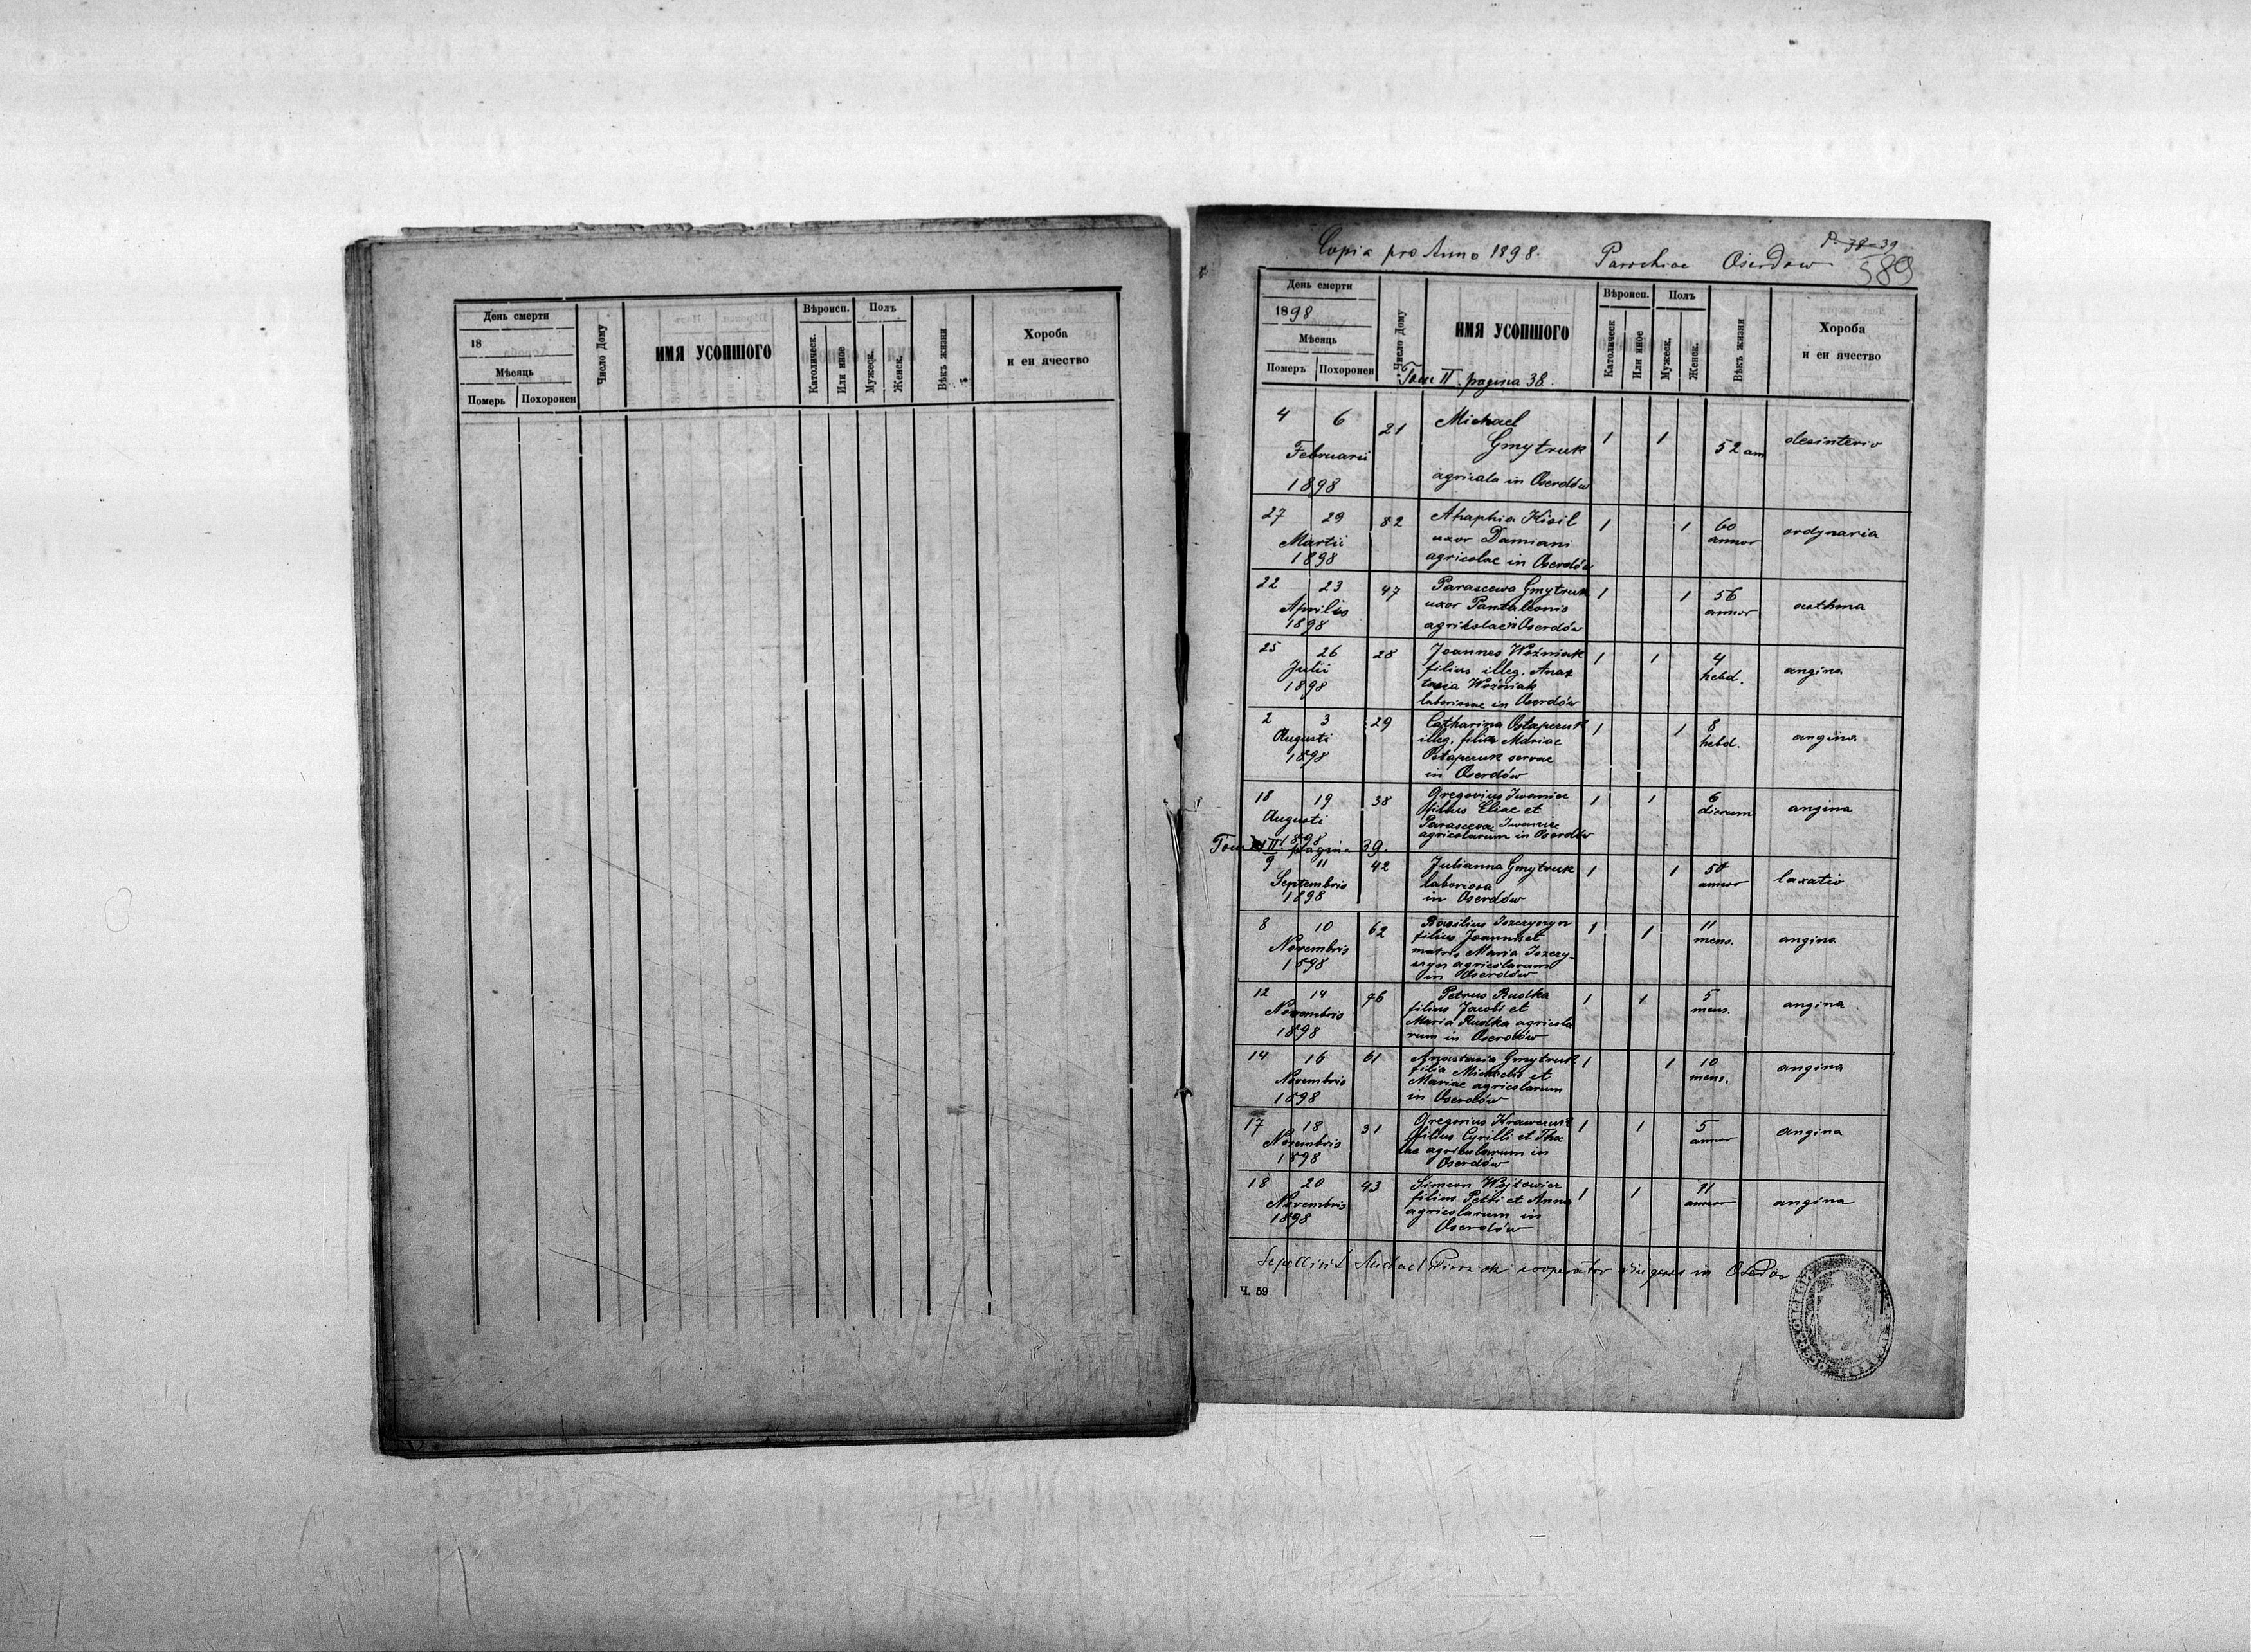 День смерти
18
Мѣсяць
Померъ
Похоронен
Число Дому
ИМЯ УСОПШОГО
Вѣроисп.
Католическ.
Или иное
Полъ
Мужеск.
Женск.
Вѣкъ жизни
Хороба
и еи ячество
Copia pro Anno 1898.
Parochiae Oserdow
P. 38-39
589
День смерти
1898
Мѣсяць
Померъ
Похоронен
Число Дому
ИМЯ УСОПШОГО
Вѣроисп.
Католическ
Или иное
Полъ
Мужеск.
Женск.
Вѣкъ жизни
Хороба
и еи ячество
Tom II. pagina 38.
4 6 21 Michael 1 1 52 ann
Februarii Gmytruk
1898 agricola in Oserdów
27 29 82 Ahaphia Kisil 1 1 60 ordynaria
Martii uxor Damiani annor
1898 agricolae in Oserdów
22 23 47 Parascewa Gmytruk 1 1 56 asthma
Aprilis uxor Pantaleonis annor
1898 agrikolae in Oserdów
25 26 28 Joannes Woźniak 1 1 4 angina
Julii filius illeg. Anas hebd.
1898 tasia Woźniak
laboriosae in Oserdów
2 3 29 Catharina Ostapczuk 1 1 8 angina
Augusti illeg. filia Mariae hebd.
1898 Ostapczuk servae
in Oserdów
18 19 38 Gregorius Iwaniec 1 1 6 angina
Augusti filius Eliae et dierum
1898 Parascevae Iwaniec
agricolarum in Oserdów
Tom II pagina 39.
9 11 42 Julianna Gmytruk 1 1 50 laxatio
Septembris laboriosa annor
1898 in Oserdów
8 10 62 Basilius Iszczyszyn 1 1 11 angina
Novembris filius Joannis et mens.
1898 matris Maria Iszczy-
szyn agricolarum
in Oserdów
12 14 76 Petrus Rudka 1 1 5 angina
Novembris filius Jacobi et mens.
1898 Maria Rudka agricola
rum in Oserdów
14 16 61 Anastasia Gmytruk 1 1 10 angina
Novembris filia Michaelis et mens.
1898 Mariae agricolarum
in Oserdów
17 18 31 Gregorius Krawczuk 1 1 5 angina
Novembris filius Cyrilli et Thec annor
1898 lae agricolarum in
Oserdów
18 20 43 Simeon Wojtowicz 1 1 11 angina
Novembris filius Petri et Anna annor
1898 agricolarum in
Oserdów
Sepelivit Michael cooperator in
Ч. 59